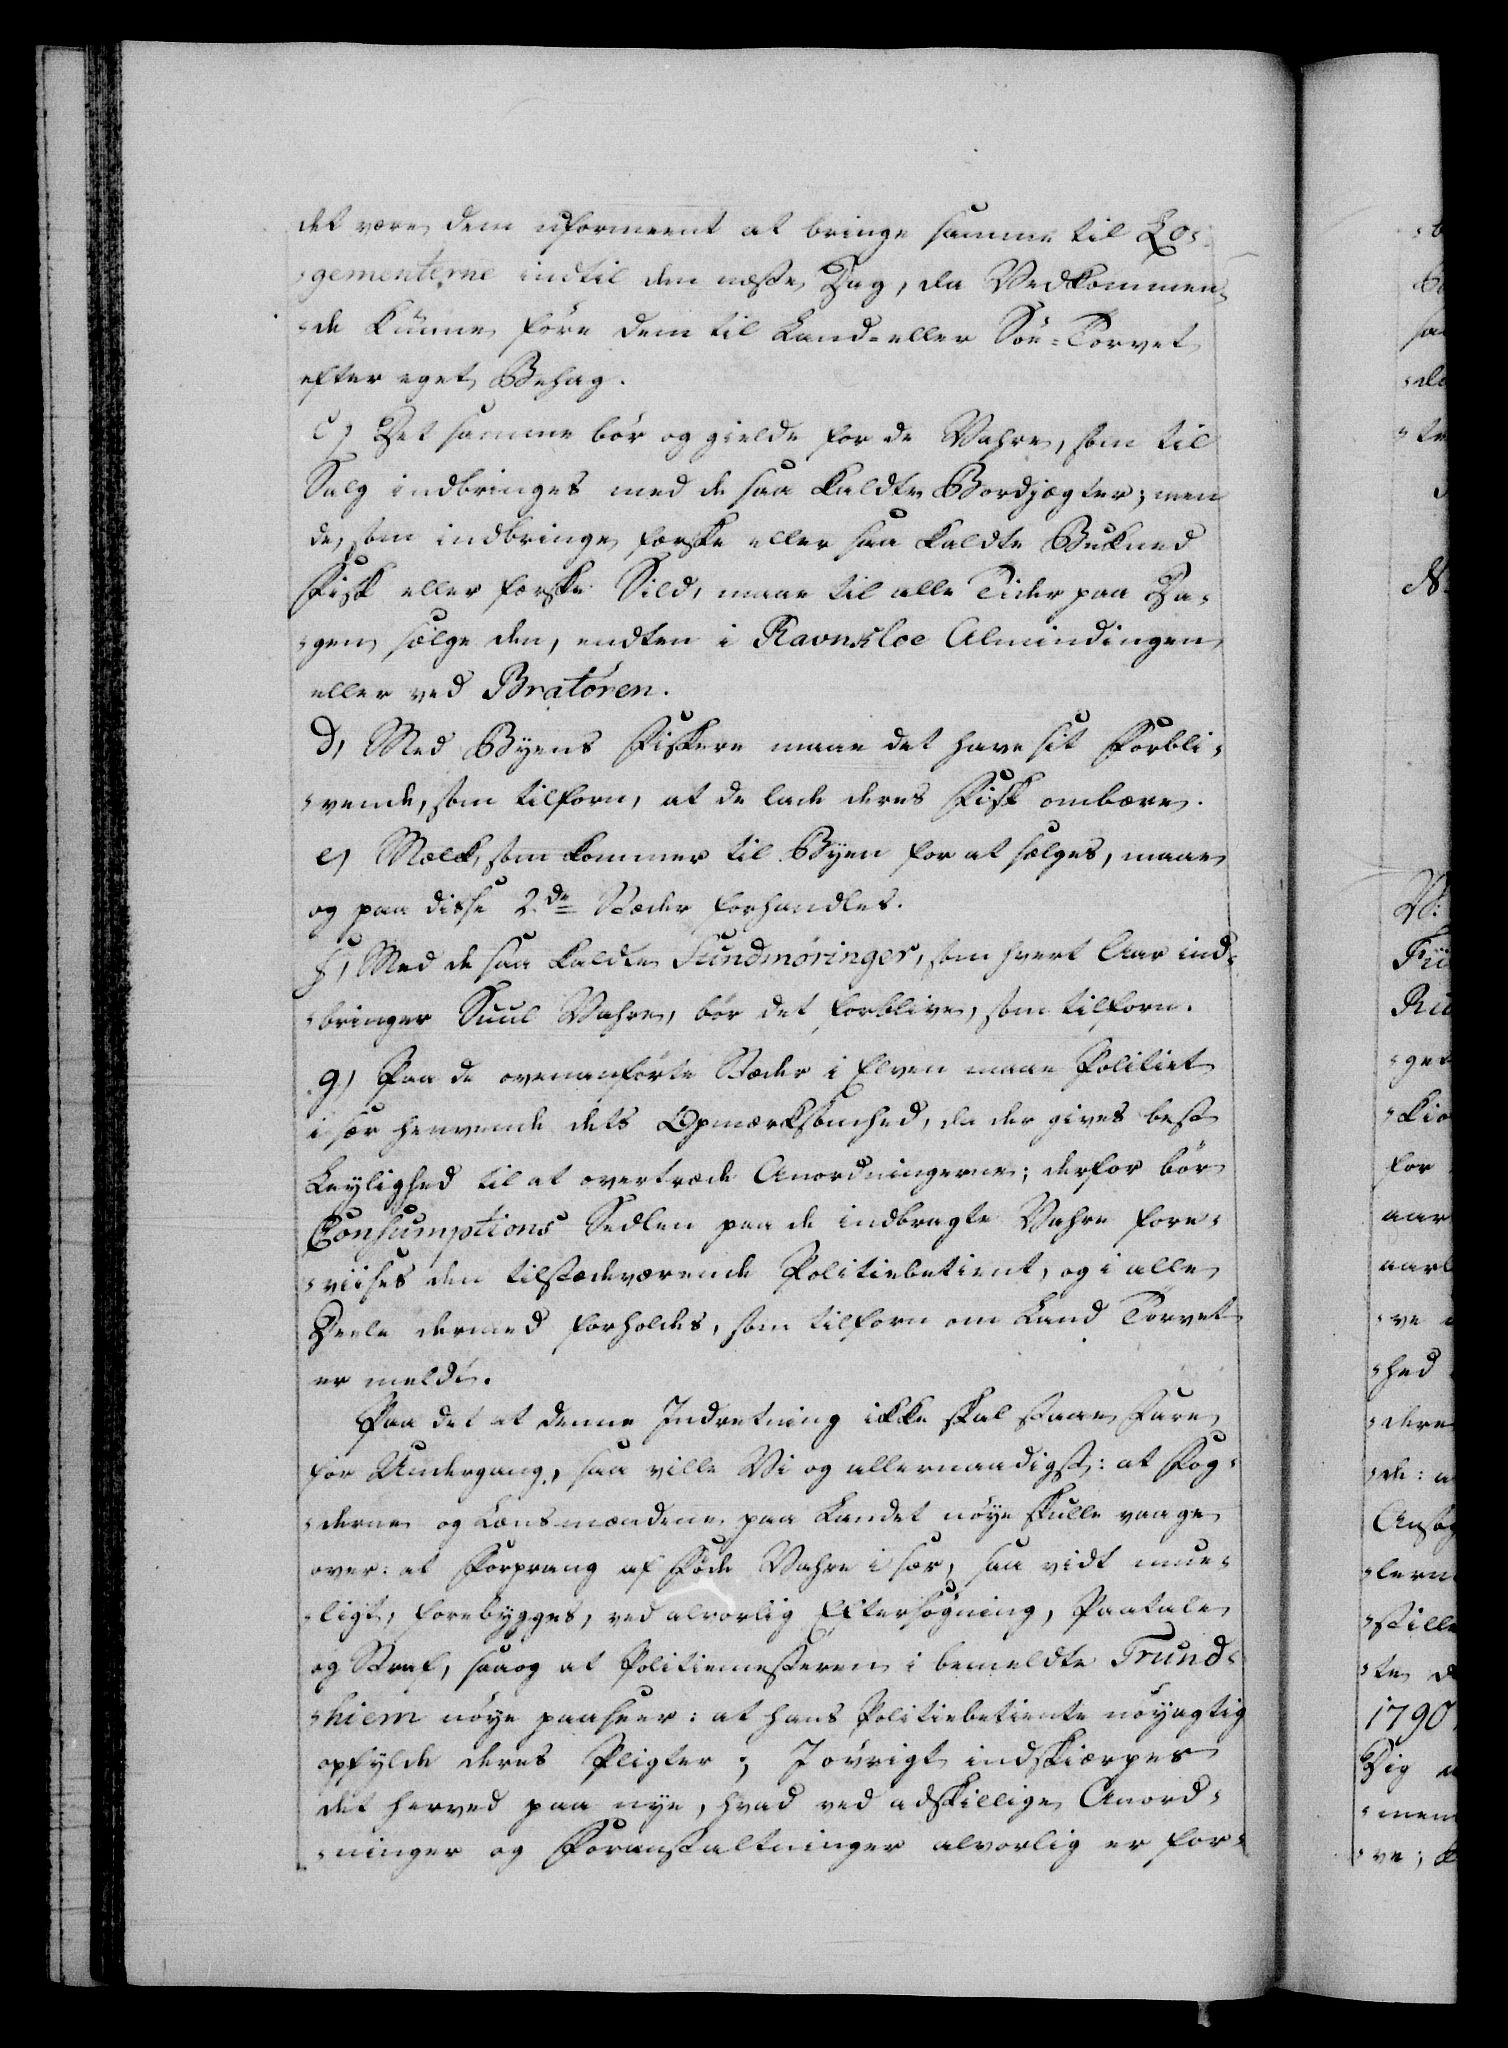 det være dem uformeent at bringe samme til Lo-
-gementerne indtil den næste Dag, da Vedkommen-
-de kunne före dem til Land- eller Söe-Torvet
efter eget Behag.
c) Det samme bör og gielde for de Vahre, som til
Salg indbringes med de saa kaldte Bordjægter; men
de, som indbringe færske eller saa kaldte Bukned
Fisk eller færske Sild, maae til alle Tider paa Da-
-gen sælge den, endten i Ravnkloe Almindingen
eller ved Bratören.
d, Med Byens Fiskere maae det have sit Forbli-
-vende, som tilforn, at de lade deres Fisk ombære.
e) Melk, som kommer til Byen for at sælges, maae
og paa disse 2de Stæder forhandles.
f) Med de saa kaldte Sundmöringer, som hvert Aar ind-
-bringer Suul Vahre, bör det forblive, som tilforn.
g) Paa de ovenanförte Stæder i Elven maae Politiet
i sær henvende dets Opmærksomhed, da der gives best
Leylighed til at overtræde Anordningerne; derfor bör
Consumptions Sedlen paa de indbragte Vahre fore-
-viises den tilstædeværende Politiebetient, og i alle
Deele dermed forholdes, som tilforn om Land Torvet
er meldt.
Paa det at denne Indretning ikke skal staae Fare
for Undergang, saa ville Vi og allernaadigst: at Fog-
-derne og Lensmændene paa Landet nöye skulle vaage
over: at Forprang af Föde Vahre i sær, saa vidt mue-
-ligt, forebygges, ved alvorlig Eftersögning, Paatale
og Straf, saa og at Politiemesteren i bemeldte Trund-
-hiem nöye paaseer: at hans Politiebetiente nöyagtig
opfylde deres Pligter; I övrigt indskierpes
det herved paa nye, hvad ved adskillige Anord-
-ninger og Foranstaltninger alvorlig er for-
1790